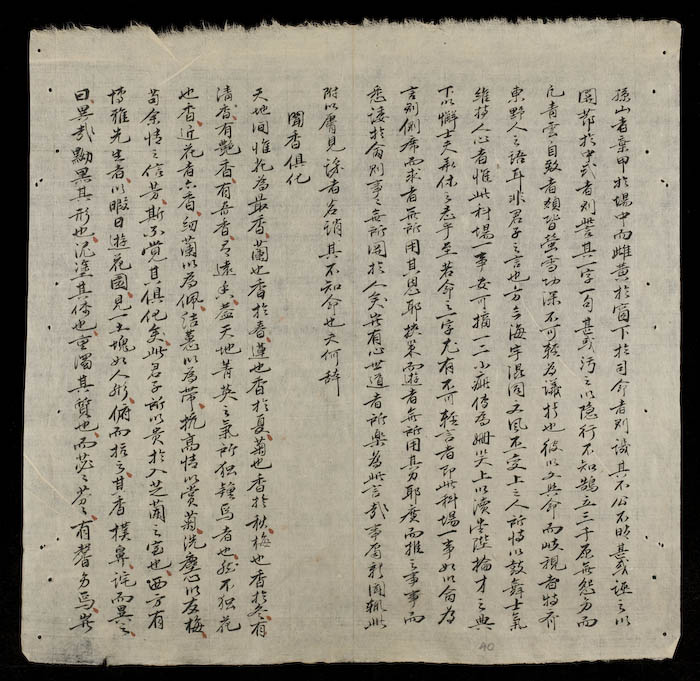 孫山者棄甲於場中而雌黃於窗下於司命者則譏其不公不明甚或誣之以
關節於中式者則訾其一字一句甚或污之以隱行不知鵠立三千原無怨方而
凡青雲自致者類皆螢雪功深不可輕為議持也彼以文與命而歧視者特齊
東野人之語耳非君子之言也方今海宇混同文風丕變上之人所恃以鼓舞士氣
維持人心者惟此科場一事安可摘一二小疵傳為姍笑上以瀆崇陛掄才之典
下以懈士夫報休之志乎至若命之一字尤有不可輕言者即此科場一事如以命為
言則側席而求者無所用其恩耶挾策而遊者無所用其力耶廣而推之事事而
悉諉於命則事之無所關於人矣豈有心世道者所樂為此言哉事屬新聞輒此
附以膚見詠者若誚其不知命也又何辭
聞香俱化
天地間惟花為最香蘭也香於春蓮也香於夏菊也香於秋梅也香於冬有
清香有艷香有奇香有遠香蓋天地菁英之氣所獨鍾焉者也然不獨花
也香近花者亦香紉蘭以為佩結蕙以為帶抗高情以賞菊洗塵心以友梅
苟余情之信芳斯不覺其俱化矣此君子所以貴於入芝蘭之室也西方有
博雅先生者以暇日遊花園見一土塊如人形俯而拾之甘香撲鼻詫而異之
曰異哉黝黑其形也泥塗其体也重濁其質也而苾苾芬芬有馨若焉豈